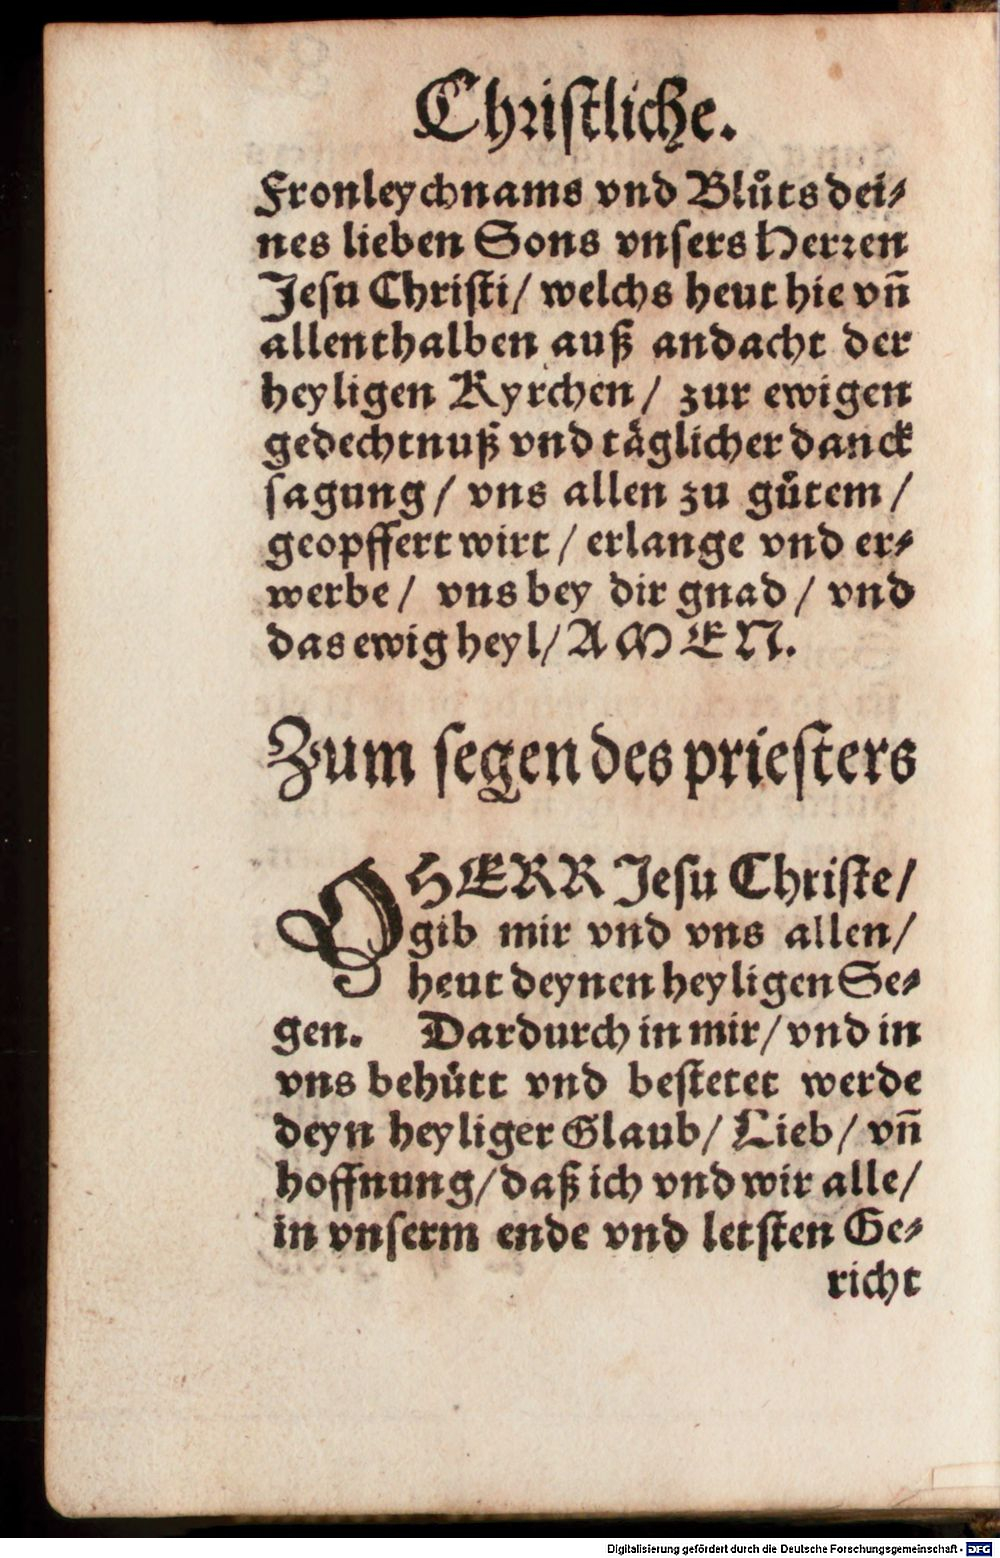 Christliche.
Fronleychnams vnd Blůts dei⸗
nes lieben Sons vnsers Herren
Jesu Christi/ welchs heut hie vñ
allenthalben auß andacht der
heyligen Kyrchen/ zur ewigen
gedechtnuß vnd täglicher danck
sagung/ vns allen zu gůtem/
geopffert wirt/ erlange vnd er⸗
werbe/ vns bey dir gnad/ vnd
das ewig heyl/ AMEN.
Zum segen des priesters
O HERR Jesu Christe/
gib mir vnd vns allen/
heut deynen heyligen Se⸗
gen. Dardurch in mir/ vnd in
vns behütt vnd bestetet werde
deyn heyliger Glaub/ Lieb/ vñ
hoffnung/ daß ich vnd wir alle/
in vnserm ende vnd letsten Ge⸗
richt
Digitalisierung gefördert durch die Deutsche Forschungsgemeinschaft - DFG